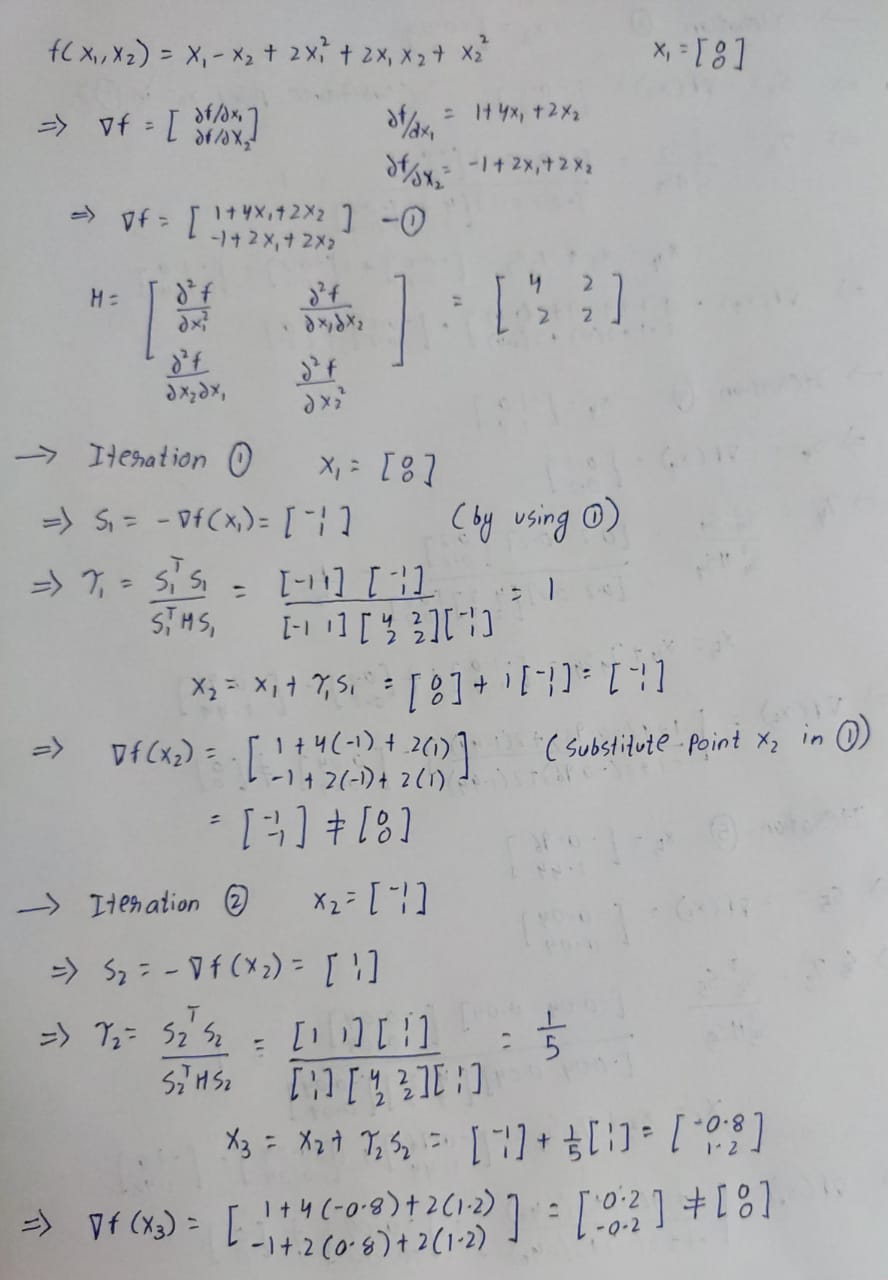 f(x₁,x₂) = x₁ - x₂ + 2x₁² + 2x₁x₂ + x₂²    x₁ = [0 0]
⇒ ∇f = [∂f/∂x₁ ∂f/∂x₂]    ∂f/∂x₁ = 1+4x₁+2x₂
∂f/∂x₂ = -1+2x₁+2x₂
⇒ ∇f = [1+4x₁+2x₂ -1+2x₁+2x₂] - ①
H = [∂²f/∂x₁² ∂²f/∂x₁∂x₂ ∂²f/∂x₂∂x₁ ∂²f/∂x₂²] = [4 2 2 2]
→ Iteration ① x₁ = [0 0]
⇒ S₁ = -∇f(x₁) = [-1 1] (by using ①)
⇒ τ₁ = S₁ᵀS₁ / S₁ᵀHS₁ = [-1 1][-1 1] / [-1 1][4 2 2 2][-1 1] = 1
x₂ = x₁ + τ₁S₁ = [0 0] + 1[-1 1] = [-1 1]
⇒ ∇f(x₂) = [1+4(-1)+2(1) -1+2(-1)+2(1)] (substitute point x₂ in ①)
= [-1 -1] ≠ [0 0]
→ Iteration ② x₂ = [-1 1]
⇒ S₂ = -∇f(x₂) = [1 1]
⇒ τ₂ = S₂ᵀS₂ / S₂ᵀHS₂ = [1 1][1 1] / [1 1][4 2 2 2][1 1] = 1/5
x₃ = x₂ + τ₂S₂ = [-1 1] + 1/5[1 1] = [-0.8 1.2]
⇒ ∇f(x₃) = [1+4(-0.8)+2(1.2) -1+2(0.8)+2(1.2)] = [0.2 -0.2] ≠ [0 0]